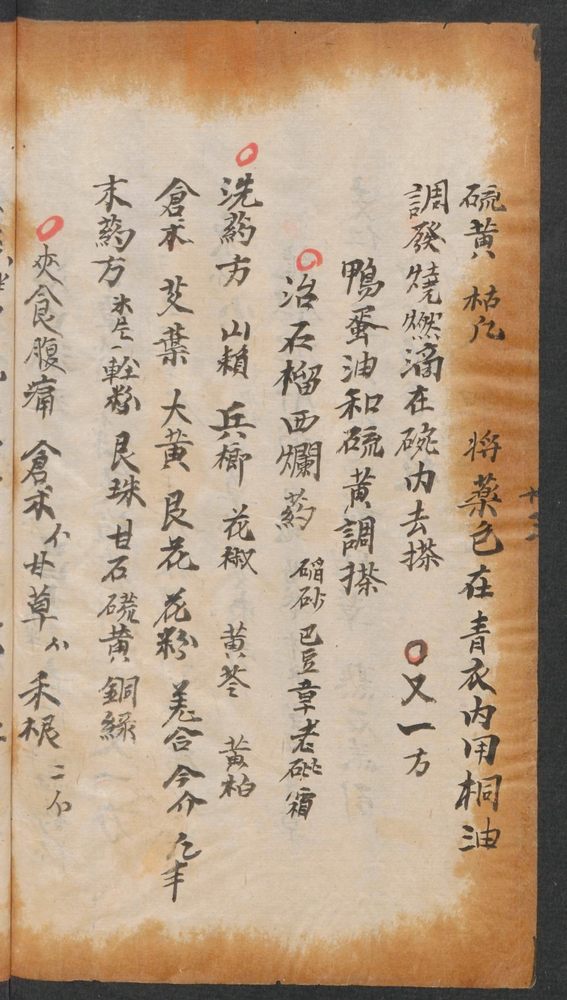 硫黄 枯凡 将薬包在青衣内用桐油
調發燒燃滴在碗内去搽 又一方
鴨蛋油和硫黄調搽
治石榴西爛葯 硇砂 巴豆 章老 砒霜
洗葯方 山頼 兵榔 花椒 黄芩 黄柏
倉朮 艾葉 大黄 艮花 花粉 羗合
末葯方 氷片 輕粉 艮珠 甘石 硫黄 銅緑
夾食腹痛 倉朮 甘草 禾根 二